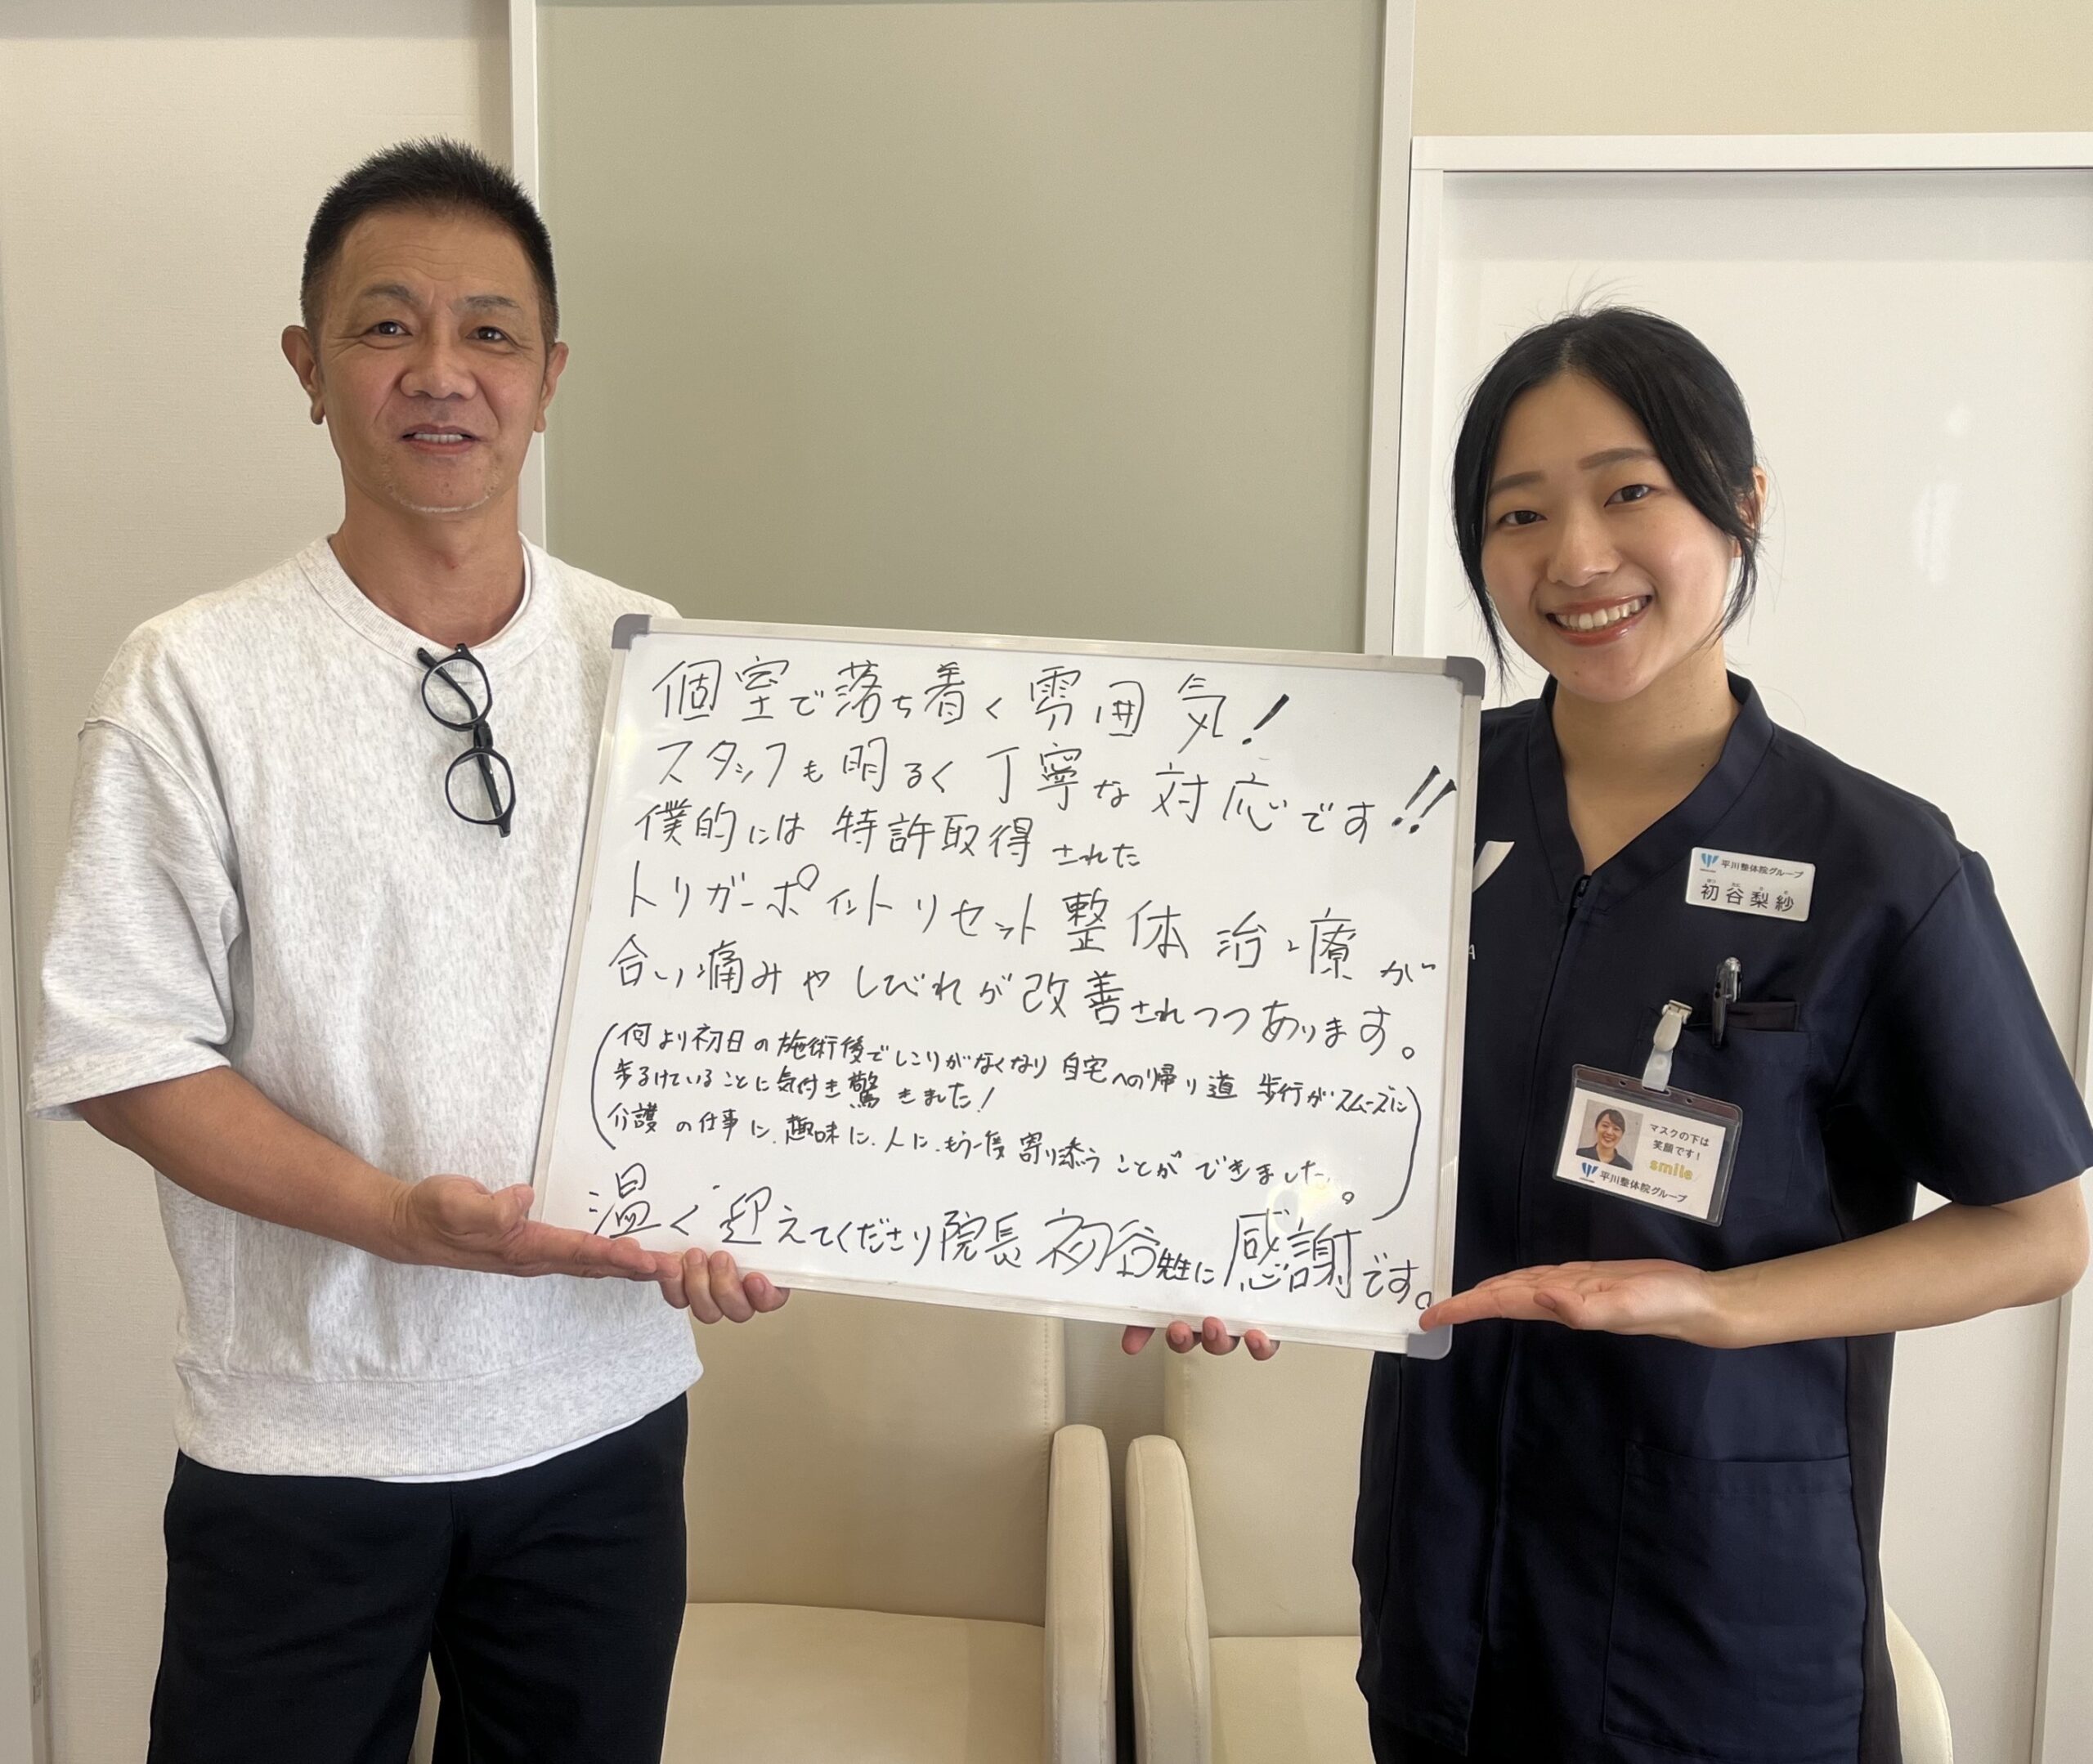 個室で落ち着く雰囲気!
スタッフも明るく丁寧な対応です!!
僕的には特許取得された
トリガーポイントリセット整体治療が
合い痛みやしびれが改善されつつあります。
(何より初日の施術後でしこりがなくなり自宅への帰り道 歩行がスムーズに
歩るけていることに気付き驚きました!
介護の仕事に、趣味に、人に、もう一度寄り添うことができました。)
温く迎えてくださり院長初谷先生に感謝です。
平川整体院グループ
初谷梨紗
マスクの下は
笑顔です!
smile
平川整体院グループ